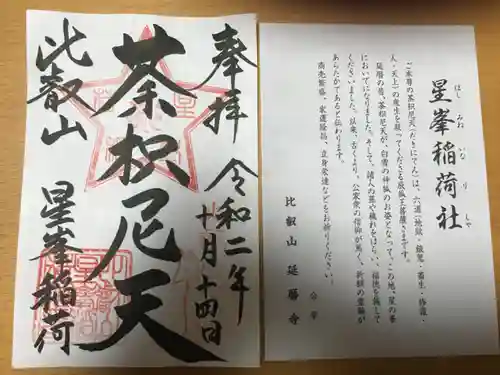 奉拝
令和二年
十月十四日
荼枳尼天
比叡山
星峯稲荷
星峯稲荷社
ほし みね いな り しゃ
ご本尊の荼枳尼天(だきにてん)は、六道(地獄・餓鬼・畜生・修羅・
人・天上)の衆生を救ってくださる辰狐王菩薩さまです。
延暦の昔、荼枳尼天が、白雪の神狐のお姿となって、この地、星の峯
においでになりました。そして、諸人の罪や穢れをはらい、福徳を施して
くださいました。以来、古くより、公家衆の信仰が篤く、祈願の霊験が
あらたかであると伝わります。
商売繁盛、家運隆昌、立身栄達などをお祈りください。
合掌
比叡山 延暦寺